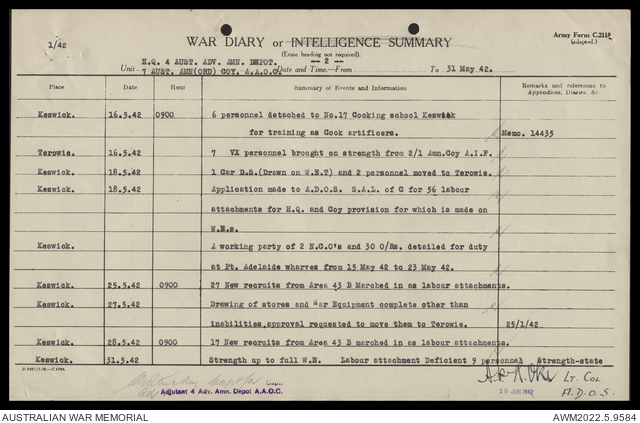 1/42
WAR DIARY or INTELLIGENCE SUMMARY
Army Form C.2118
(adapted.)
(Erase heading not required).
H.Q. 4 AUST. ADV. AMN. DEPOT. -- 2 --
Unit 7 AUST. AMN(ORD) COY. A.A.O.C. Date and Time.—From To 31 May 42.
Place Date Hour Summary of Events and Information Remarks and references to
Appendices, Diaries, &c
Keswick. 16.5.42 0900 6 personnel detached to No.17 Cooking school Keswick
for training as Cook artificers. Memo. 14435
Terowie. 16.5.42 7 VX personnel brought on strength from 2/1 Amn.Coy A.I.F.
Keswick. 18.5.42 1 Car D.S.(Drawn on W.E.T) and 2 personnel moved to Terowie.
Keswick. 18.5.42 Application made to A.D.O.S. S.A.L. of C for 56 labour
attachments for H.Q. and Coy provision for which is made on
W.Es.
Keswick. A working party of 2 N.C.O's and 30 O/Rs. detailed for duty
at Pt. Adelaide wharves from 15 May 42 to 23 May 42.
Keswick. 25.5.42 0900 27 New recruits from Area 43 B Marched in as labour attachments.
Keswick. 27.5.42 Drawing of stores and War Equipment complete other than
inabilities,approval requested to move them to Terowie. 25/1/42
Keswick. 28.5.42 0900 17 New recruits from Area 43 B marched in as labour attachments.
Keswick. 31.5.42 Strength up to full W.E. Labour attachment Deficient 9 personnel Strength-state
Capt.
Adjutant 4 Adv. Amn. Depot A.A.O.C.
Lt. Col.
A.D.O.S.
10 JUN 1942
AUSTRALIAN WAR MEMORIAL
AWM2022.5.9584